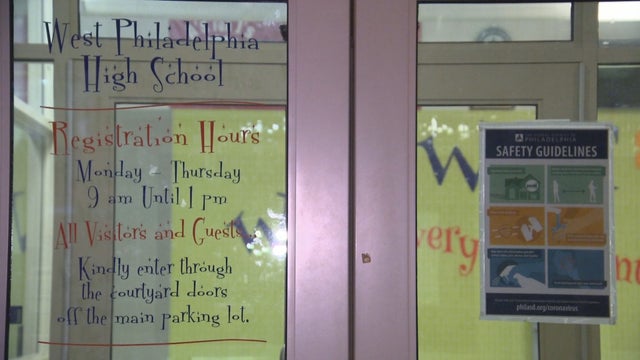 West Philadelphia
High School
Registration Hours
Monday - Thursday
9 am Until 1 pm
All Visitors and Guests
Kindly enter through
the courtyard doors
off the main parking lot.
W
very
PHILADELPHIA
SAFETY GUIDELINES
philasd.org/coronavirus